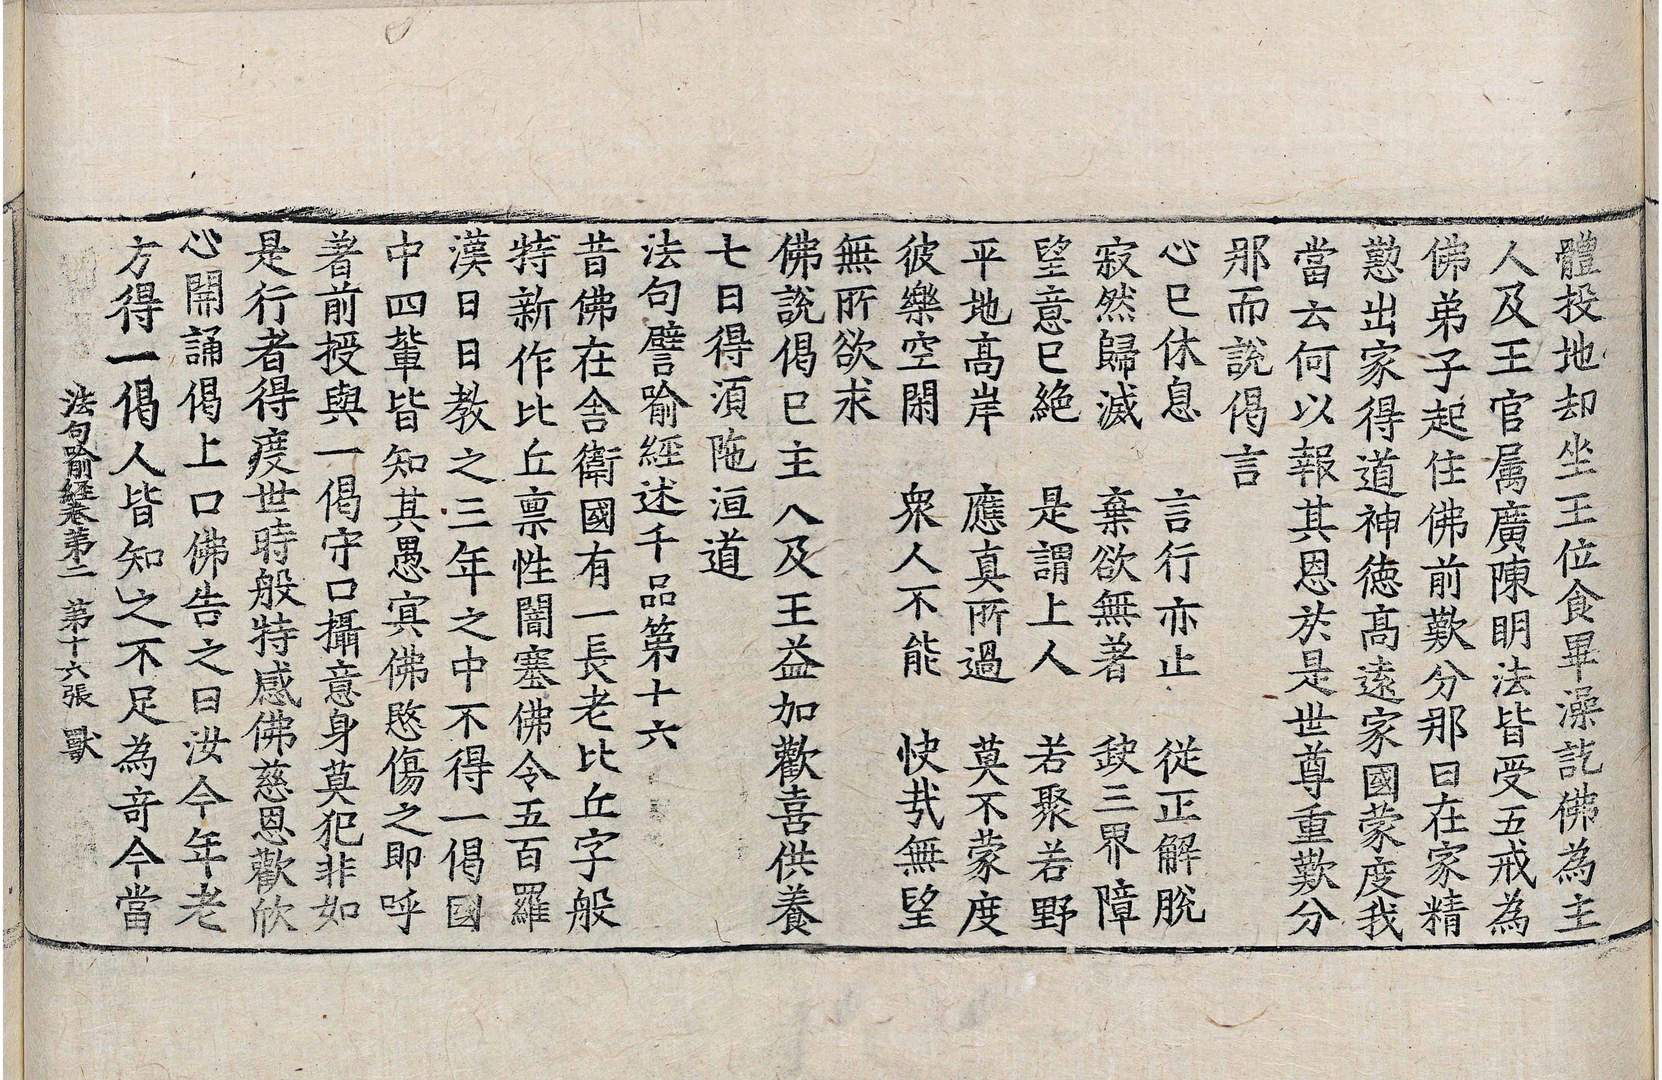 體投地却坐王位食畢澡訖佛為主
人及王官属廣陳明法皆受五戒為
佛弟子起住佛前歎分那曰在家精
懃出家得道神徳高遠家國蒙度我
當云何以報其恩於是世尊重歎分
那而說偈言
心已休息　言行亦止　從正解脫
寂然歸滅　棄欲無著　𡙇三界障
望意已絶　是謂上人　若聚若野
平地高岸　應真所過　莫不蒙度
彼樂空閑　衆人不能　快㢤無望
無所欲求
佛說偈已主人及王益加歡喜供養
七日得湏陁洹道
法句譬喻經述千品第十六
昔佛在舎衛國有一長老比丘字般
特新作比丘禀性闇塞佛令五百羅
漢日日教之三年之中不得一偈國
中四軰皆知其愚㝠佛愍傷之即呼
著前授與一偈守口攝意身莫犯非如
是行者得度世時般特感佛慈恩歡欣
心開誦偈上口佛告之曰汝今年老
方得一偈人皆知之不足為竒今當
法句喻経卷苐二　苐十六張　獸